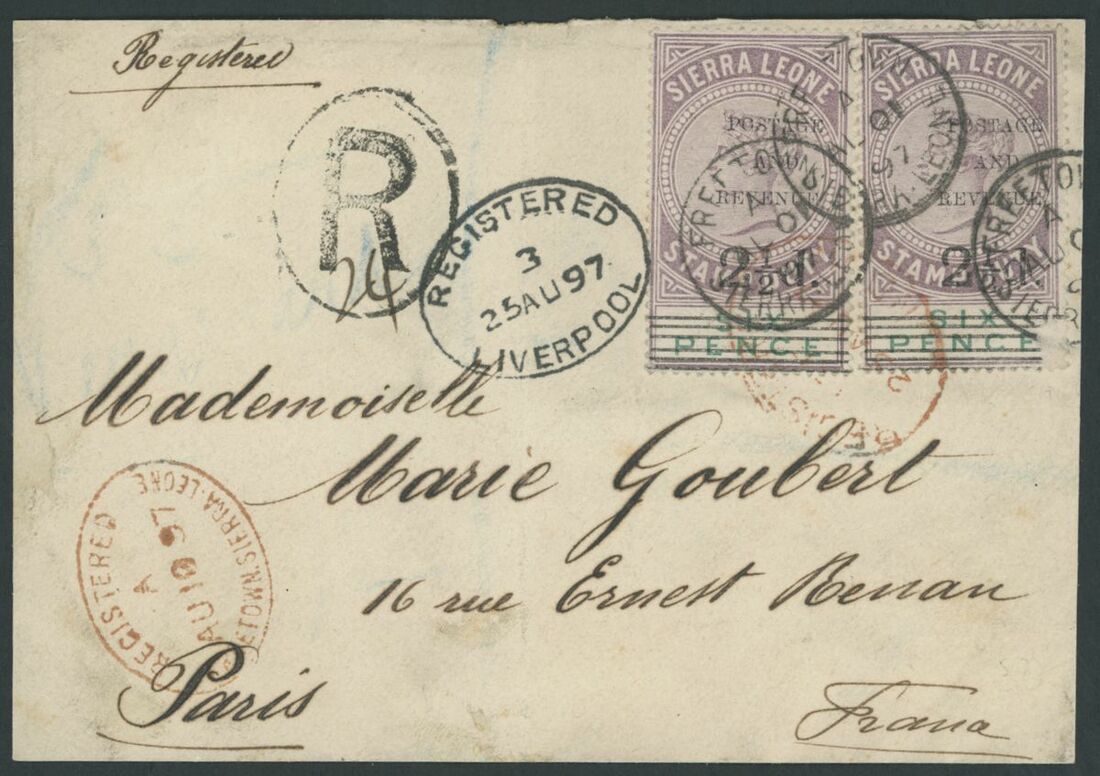 Registered
R
24
REGISTERED
3
25 AU 97
LIVERPOOL
SIERRA LEONE
POSTAGE
AND
REVENUE
2½d.
STAMP DUTY
SIX
PENCE
SIERRA LEONE
POSTAGE
AND
REVENUE
2½d.
STAMP DUTY
SIX
PENCE
FREETOWN
A
Mademoiselle
Marie Goubert
16 rue Ernest Renan
Paris
France
REGISTERED
A
AU 10 97
FREETOWN. SIERRA-LEONE